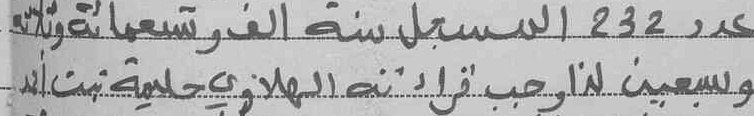 عدد 232 المسجل سنة الف و تسعمائة وثلاثه
وسبعين لذا وجب قراءته الهلاوي حليمة بنت